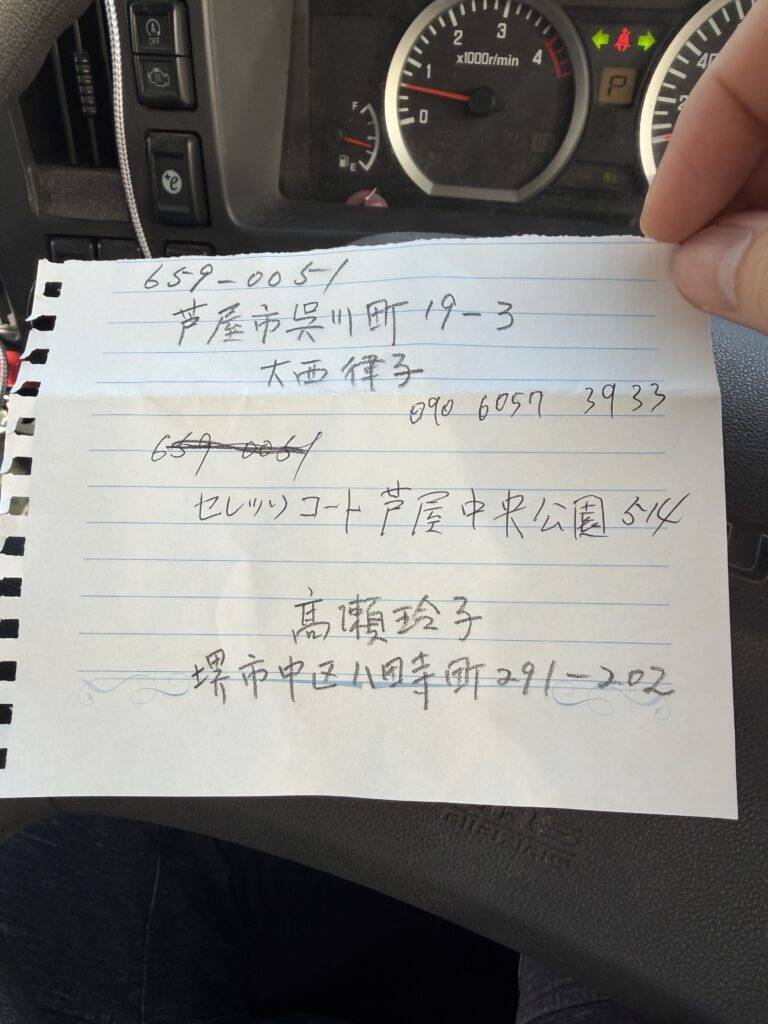 A
OFF
e
F
E
0
1
2
3
4
x1000r/min
P
659-0051
芦屋市呉川町19-3
大西律子
090 6057 3933
659 0051
セレッソコート芦屋中央公園514
高瀬玲子
堺市中区八田寺町291-202
SRS
AIRBAG